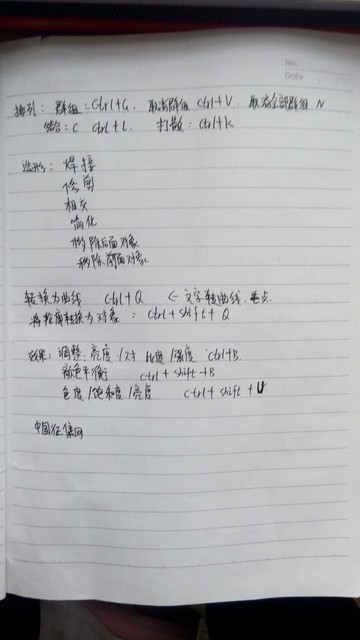 No.
Date
排列：群组：Ctrl+G. 取消群组 Ctrl+V. 取消全部群组 N
结合：C Ctrl+L. 打散：Ctrl+K
造形：焊接
修剪
相交
简化
移除后面对象
移除前面对象
转换为曲线 Ctrl+Q ← 文字转曲线.重点.
将轮廓转换为对象：Ctrl+shift+Q
效果：调整：亮度/对比度/强度 Ctrl+B.
颜色平衡 Ctrl+shift+B
色度/饱和度/亮度 Ctrl+shift+U
中国征集网